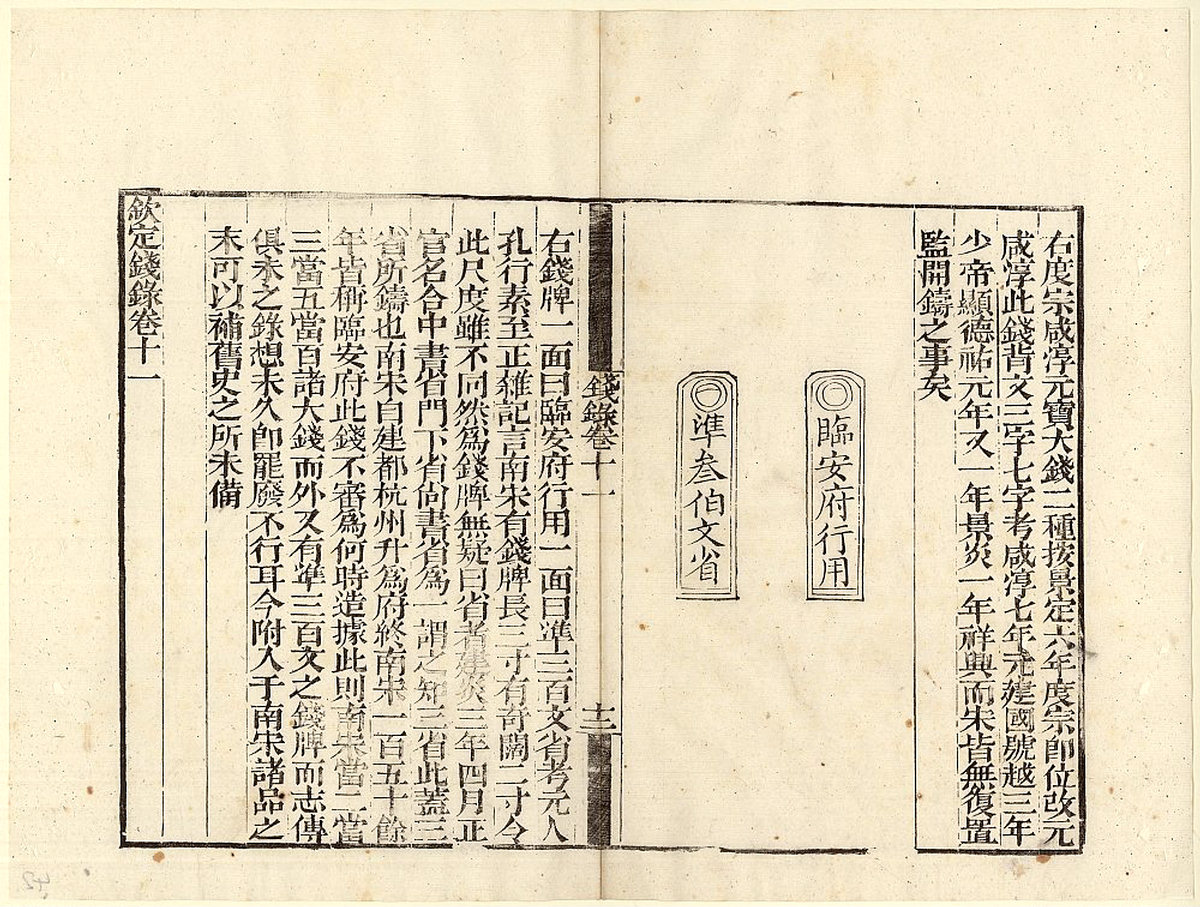 右度宗咸淳元寶大錢二種按景定六年度宗卽位改元
咸淳此錢背文三字七字考咸淳七年元建國號越三年
少帝顯德祐元年又一年景炎一年祥興而宋皆無復置
監開鑄之事矣
臨安府行用
準叁伯文省
錢錄卷十一
十三
右錢牌一面曰臨安府行用一面曰準三百文省考元人
孔行素至正雜記言南宋有錢牌長三寸有奇闊二寸今
此尺度雖不同然爲錢牌無疑曰省者建炎三年四月正
官名合中書省門下省尚書省爲一謂之知三省此蓋三
省所鑄也南宋自建都杭州升爲府終南宋一百五十餘
年皆稱臨安府此錢不審爲何時造據此則南宋當二當
三當五當百諸大錢而外又有準三百文之錢牌而志傳
俱未之錄想未久卽罷廢不行耳今附入于南宋諸品之
末可以補舊史之所未備
欽定錢錄卷十一